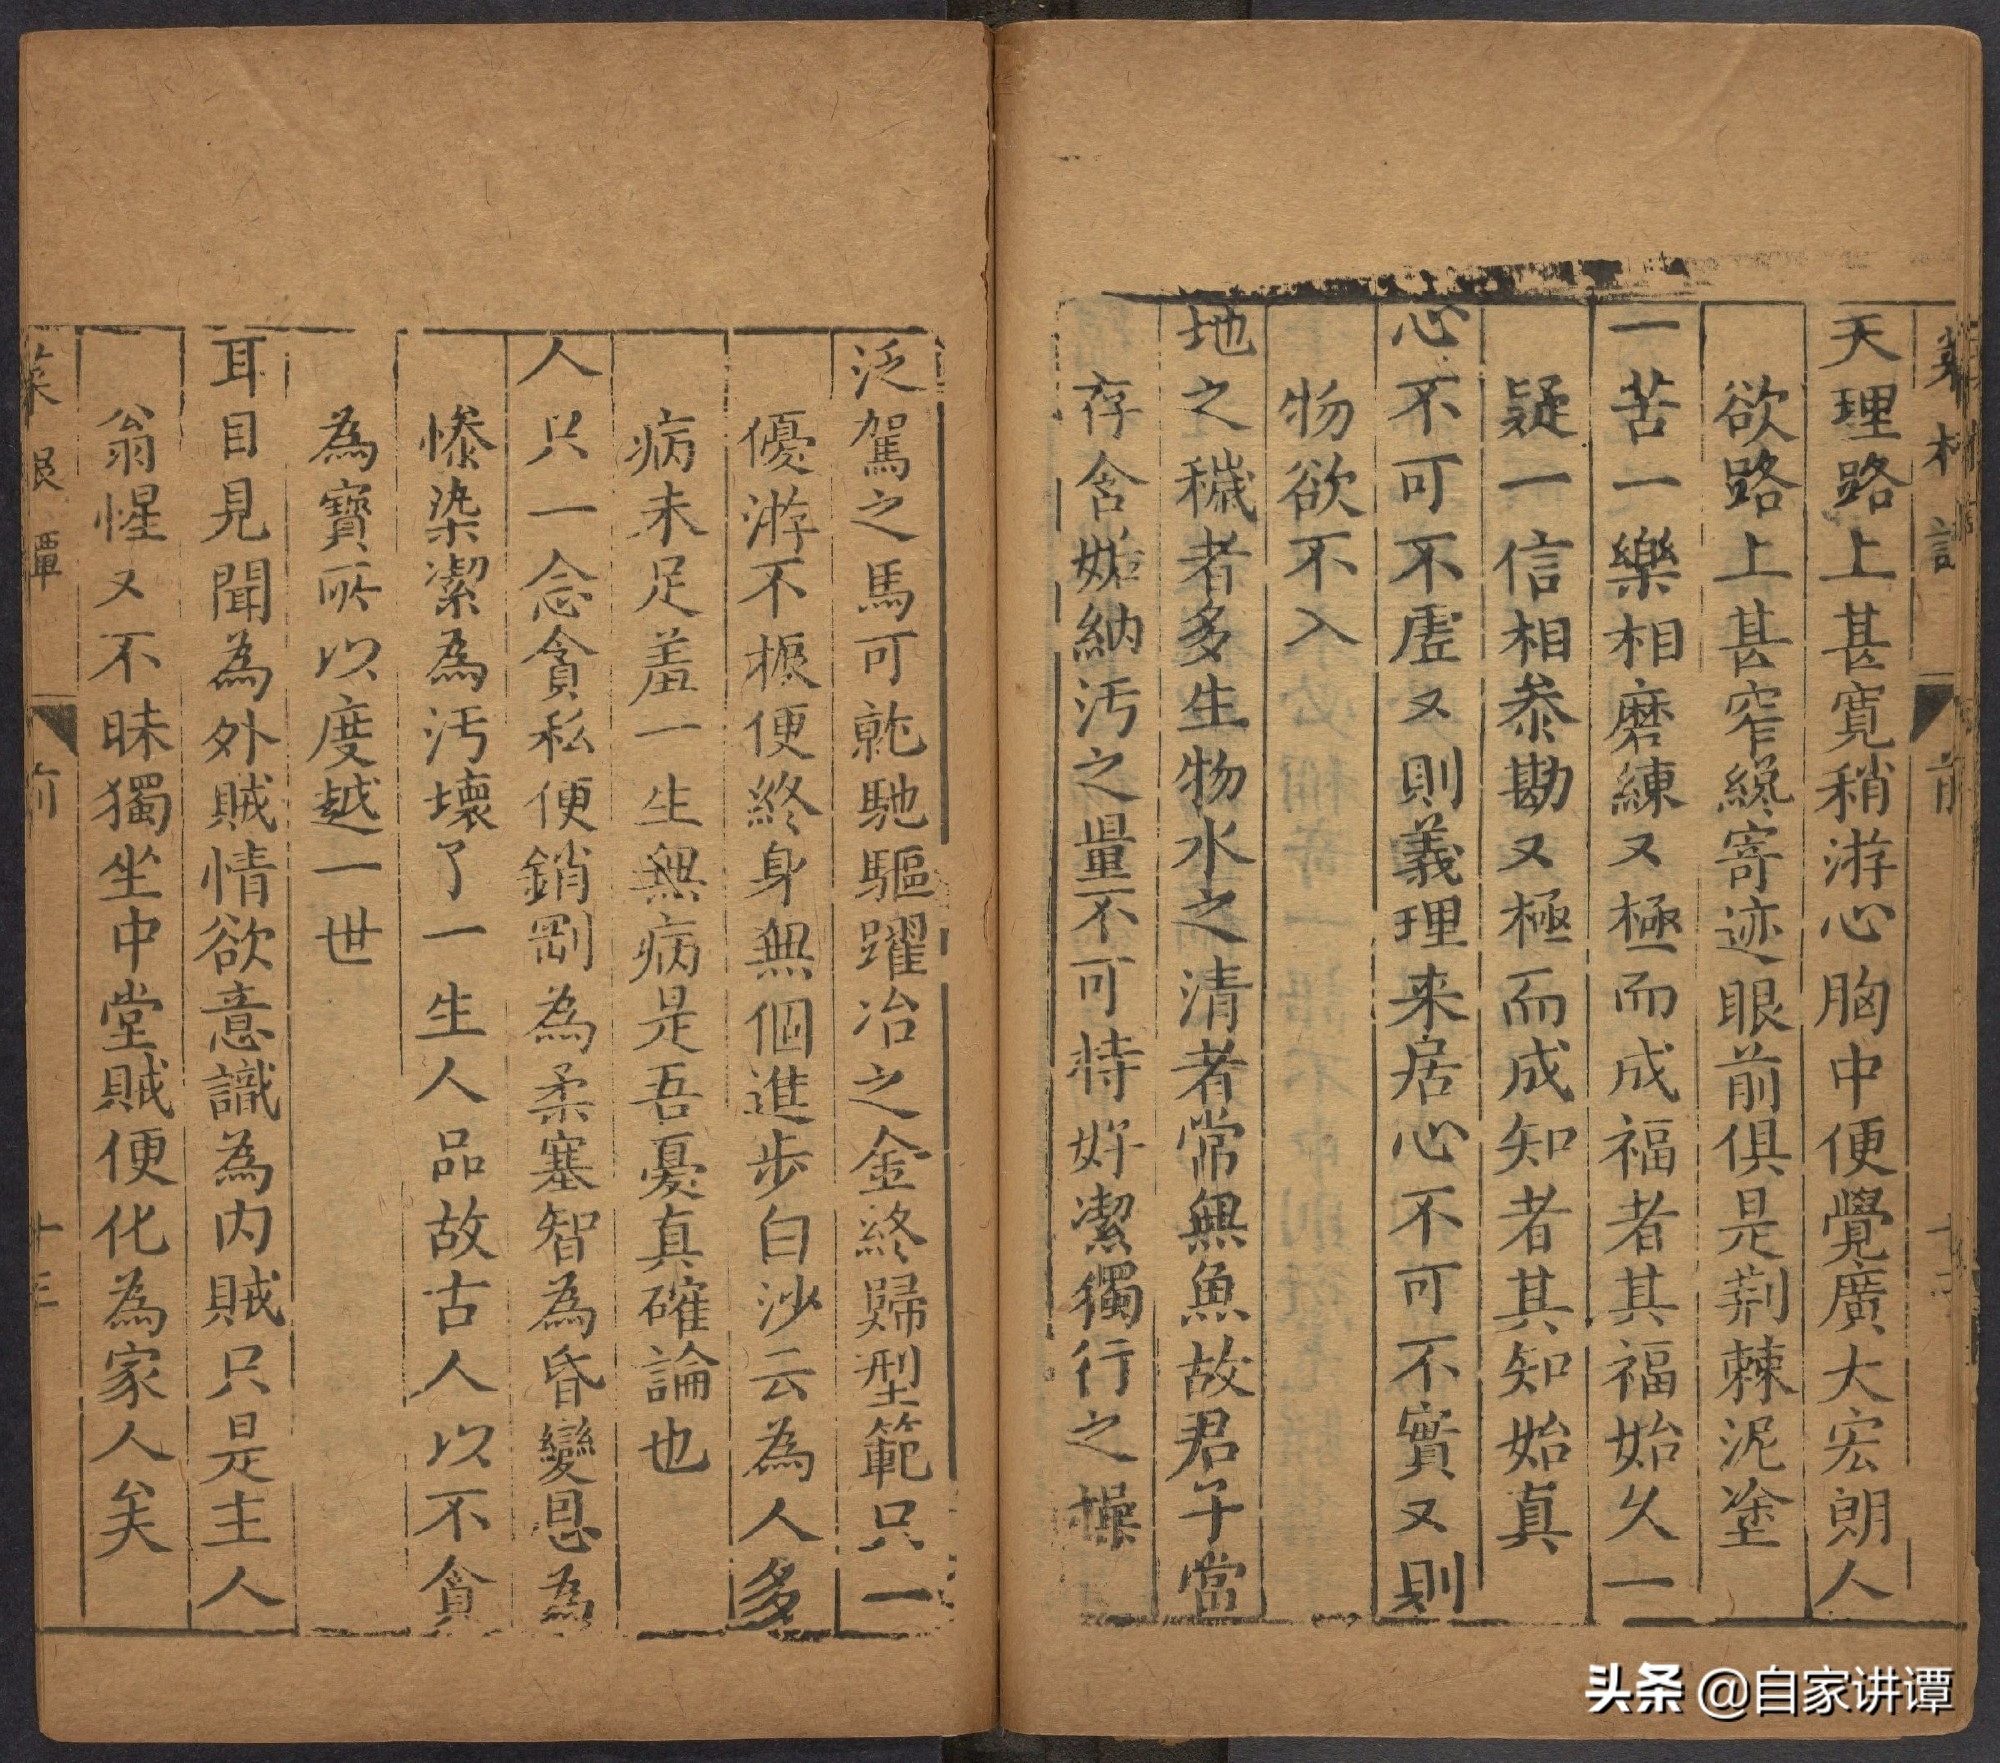 菜根譚
前
天理路上甚寬稍游心胸中便覺廣大宏朗人
欲路上甚窄纔寄迹眼前俱是荆棘泥塗
一苦一樂相磨練又極而成福者其福始久一
疑一信相叅勘又極而成知者其知始真
心不可不虗又則義理来居心不可不實又則
物欲不入
地之穢者多生物水之清者常無魚故君子當
存含妬納汚之量不可持好潔獨行之操
泛駕之馬可就馳驅躍冶之金終歸型範只一
優游不振便終身無個進步白沙云為人多
病未足羞一生無病是吾憂真確論也
人只一念貪私便銷剛為柔塞智為昏變恩為
慘染潔為汚壞了一生人品故古人以不貪
為寶所以度越一世
耳目見聞為外賊情欲意識為内賊只是主人
翁惺又不昧獨坐中堂賊便化為家人矣
菜根譚
前
十三
头条 @自家讲谭